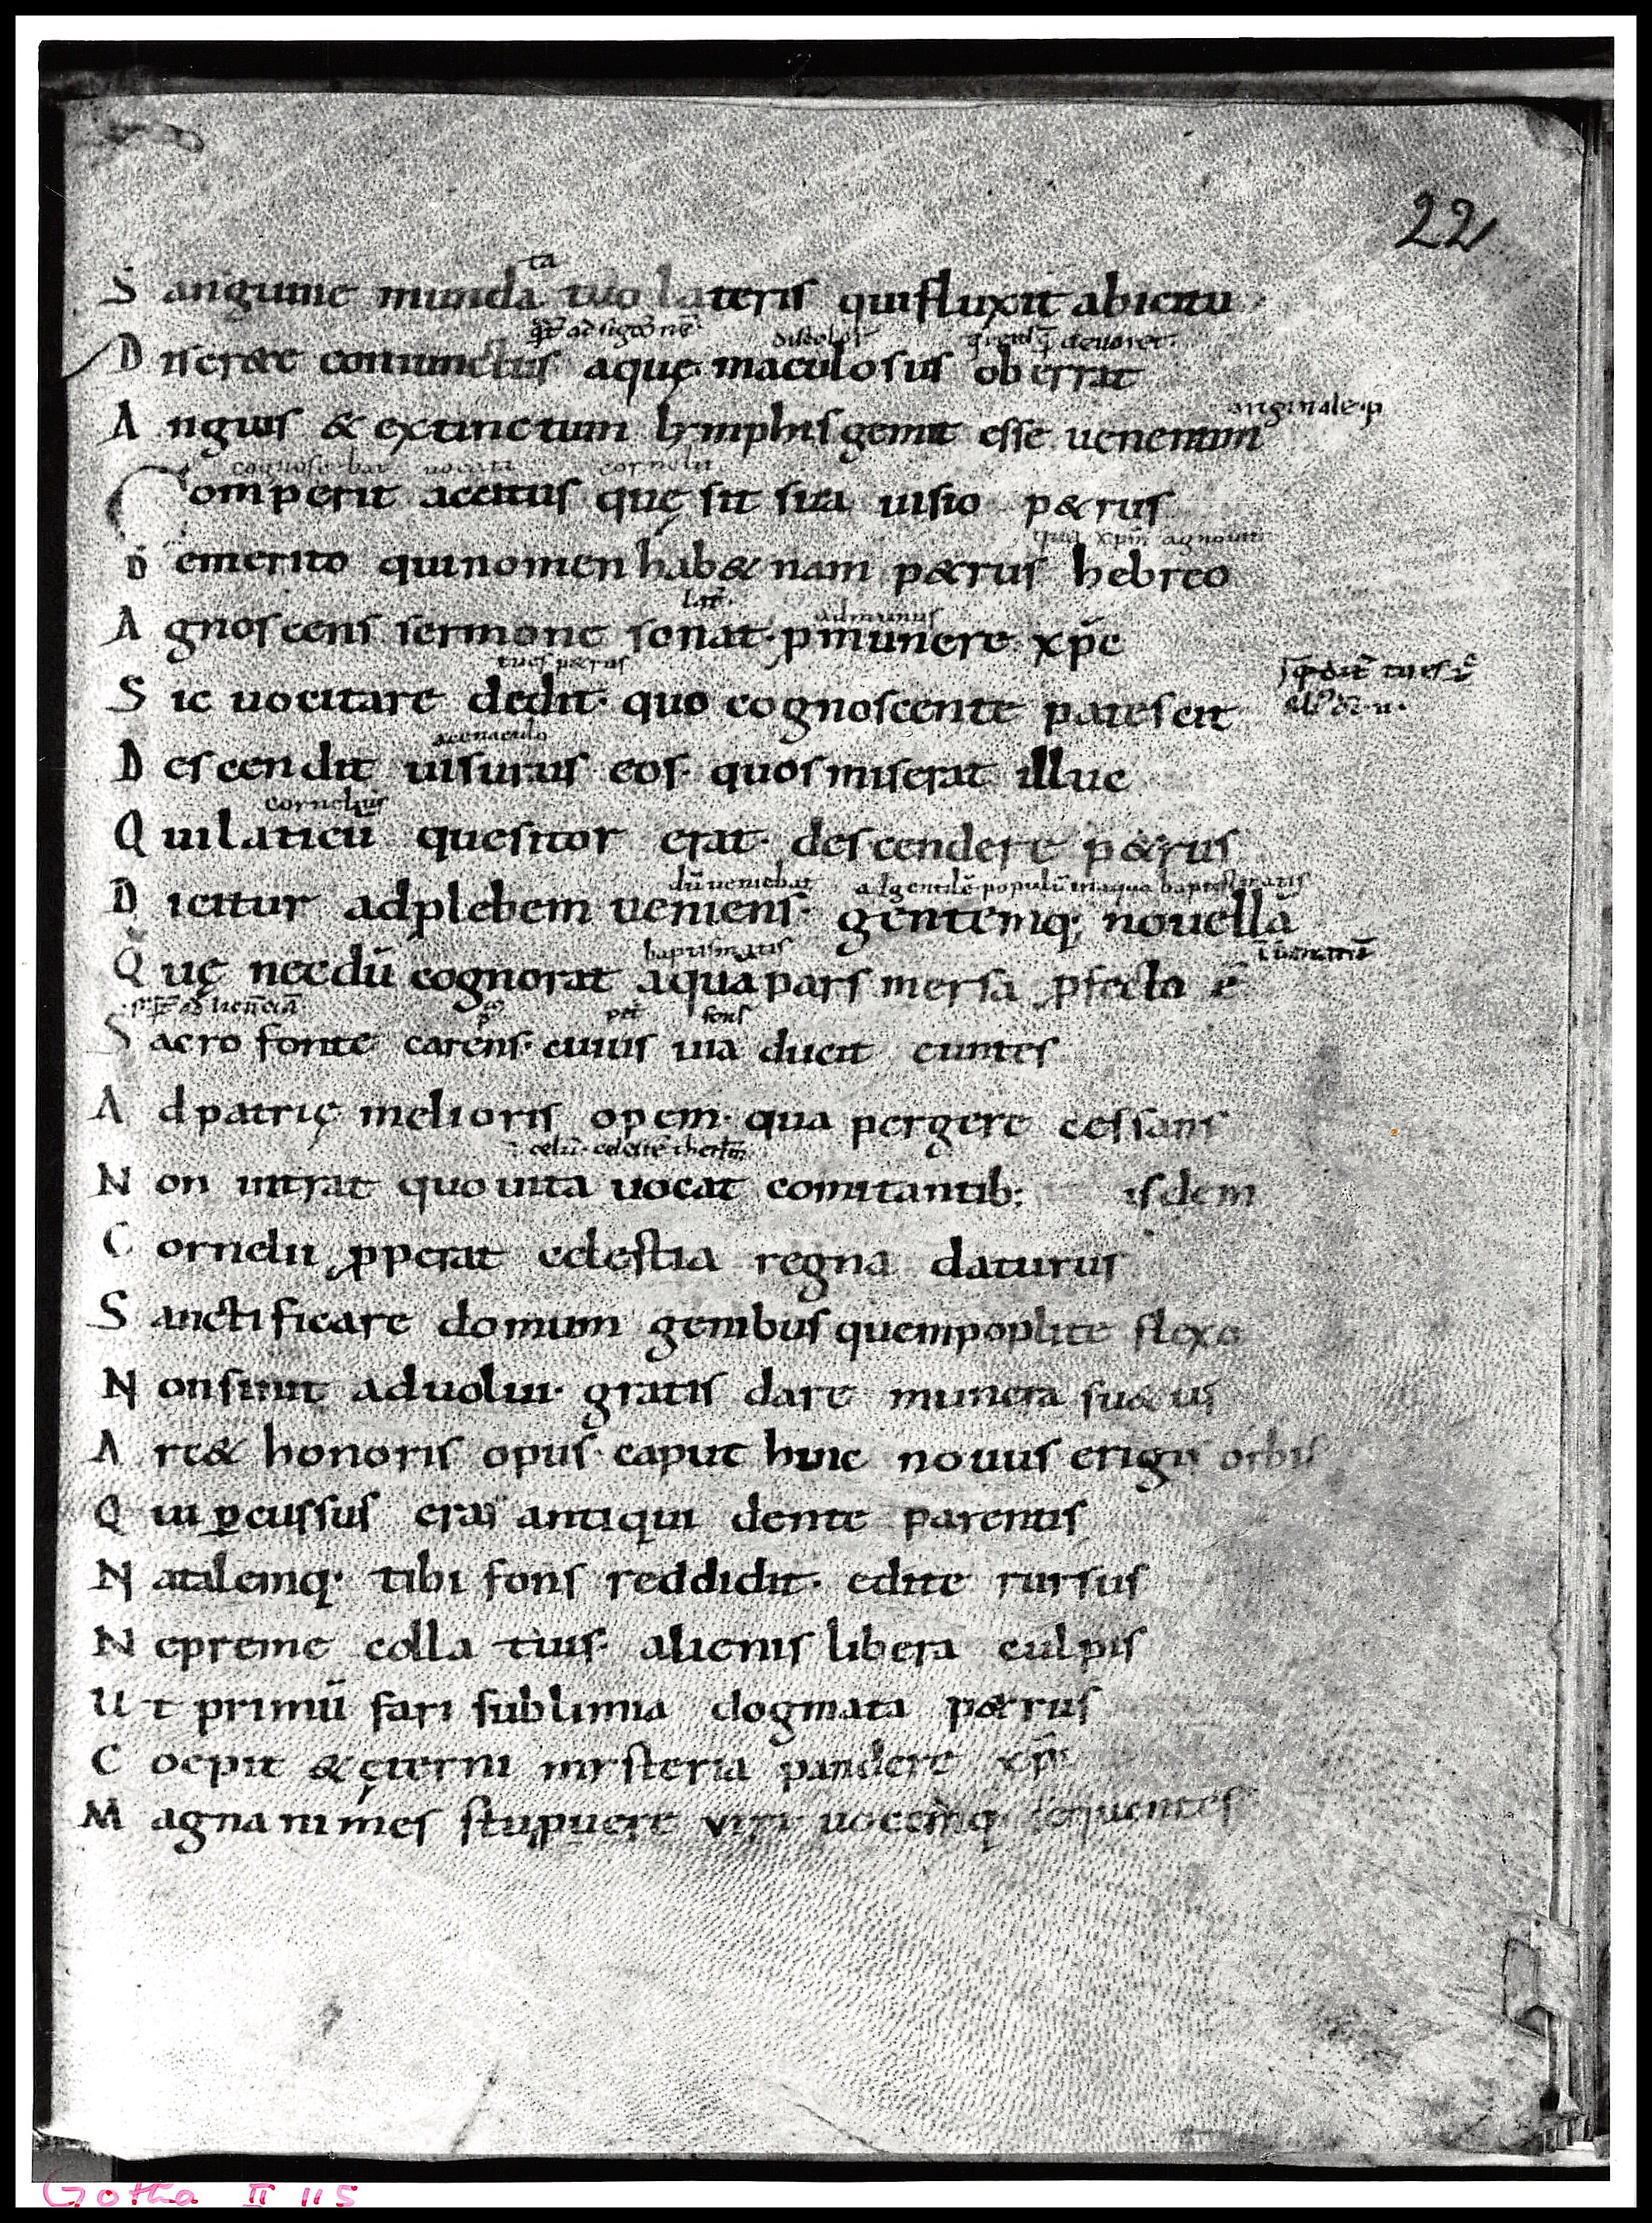 22
ta
Sanguine munda tuo lateris qui fluxit ab ictu
discolor
Discr&e coniunctus aquę maculosus oberrat
originale p
Anguis & extinctum lymphis gemit esse uenenum
cognoscebat uocatus cornelii
Comperit accitus quę sit sua uisio p&rus
qui xpm agnouit
Demerito qui nomen hab& nam p&rus hebreo
lat
ad munus
Agnoscens sermone sonat· p munere xpe
tu es p&rus
Sic uocitare dedit· quo cognoscente patescit
acenaculo
Descendit uisurus eos· quos miserat illuc
cornelius
Qui laticū quesitor erat· descendere p&rus
dū ueniebat ad gentilē populū in aqua baptismatis
Dicitur adplebem ueniens· gentemq; nouellā
baptismatis
Quę necdū cognorat aqua pars mersa pfecto ē
fons
Sacro fonte carens· cuius uia ducit euntes
Ad patrię melioris opem· qua pergere cessans
celū· celestē
Non intrat quo uita uocat comitantib; isdem
Cornelii pperat celestia regna daturus
Sanctificare domum genibus quem poplite flexo
Non sinit aduolui· gratis dare munera sua& uis
Ar&e honoris opus· caput huic nouus erigis orbis
Qui pcussus eras antiqui dente parentis
Natalemq· tibi fons reddidit· edite rursus
Nepreme colla tuis· alienis libera culpis
Ut primū fari sublimia dogmata p&rus
Coepit & ęterni mysteria pandere xpi
Magnanimes stupuere uiri uocemq· sequentes
Gotha II 115